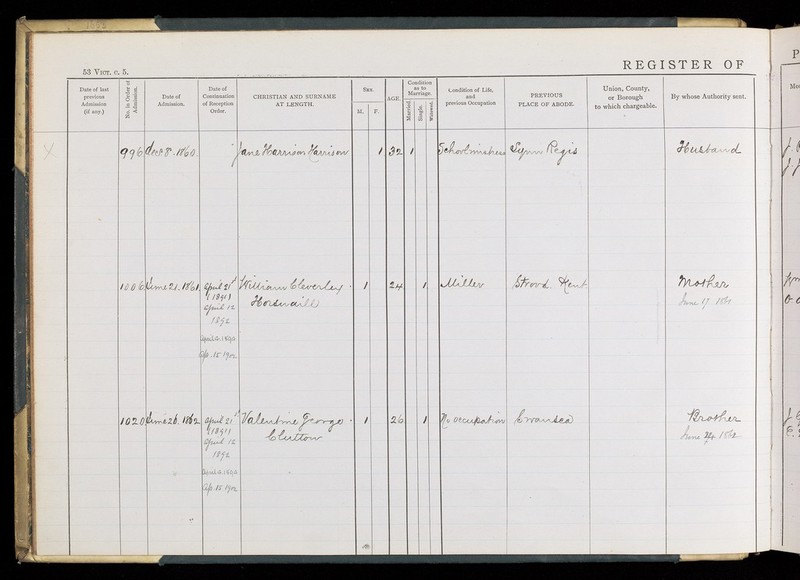 53 VICT. c. 5.
REGISTER OF
Date of last
previous
Admission
(if any.)
No. in Order of
Admission.
Date of
Admission.
Date of
Continuation
of Reception
Order.
CHRISTIAN AND SURNAME
AT LENGTH.
SEX.
M.
F.
AGE.
Condition
as to
Marriage.
Married.
Single.
Widowed.
Condition of Life,
and
previous Occupation
PREVIOUS
PLACE OF ABODE.
Union, County,
or Borough
to which chargeable.
By whose Authority sent.
996 Decr 8. 1860. Jane Harrison Harrison 1 32 1 Schoolmistress Lynn Regis Husband
1006 June 21. 1861 April 21st William Cleverley 1 24 1 Miller Strood. Kent Mother
1891 Horsnaill June 17. 1861
April 12
1892
April 2. 1892
Ap. 15 1902
1020 June 26. 1862 April 21st Valentine George 1 26 1 No occupation Swansea Brother
1891 Clutton June 24. 1862
April 12
1892
Ap. 15 1902